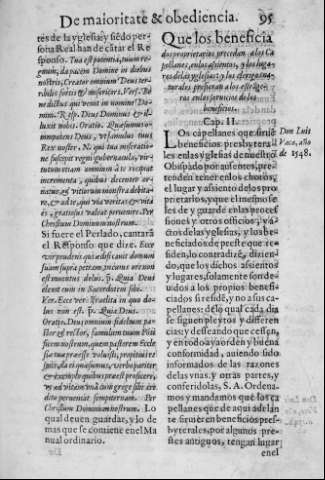 De maioritate & obediencia. 95
tes de la yglesia y siẽdo per-
sona Real han de cãtar el Re
sponso. Tua est potentia, tuum re-
gnum, da pacem Domine in diebus
nostris, Creator omnium Deus ter-
ribilis fortis & misericors. Vers. Be
ne dictus qui venit in nomine Do-
mini. Resp. Deus Dominus & il-
luxit nobis. Oratio. Quęsumus
omnipotens Deus, vt famulus tuus
Rex noster, N. qui tua miseratio-
ne suscepit regni gubernacula, vir-
tutum etiam omnium à te recipiat
incrementa, quibus decenter or-
natus, & vitiorum monstra deuita-
re, & ad te, qui via veritas & vita
es, gratiosus valeat peruenire. Per
Christum Dominum nostrum.
Si fuere el Perlado, cantarã
el Responso que dize. Ecce
vir prudens qui ædificauit domum
suam supra petram, in cuius ore non
est inuentus dolus. ℣. Quia Deus
elegit eum in Sacerdotem sibi.
Ver. Ecce vere Israelita in quo do-
lus non est. ℣. Quia Deus.
Oratio. Deus omnium fidelium pa-
stor & rector, famulum tuum
Põtificem nostrum, quem pastorem Ecclesi
siæ tuæ præesse voluisti, propitius re
spice, da ei quæsumus, verbo pariter
& exemplo quibus præest proficere,
vt ad vitam vnà cum grege sibi cre
dito perueniat sempiternam. Per
Christum Dominum nostrum. Lo
qual deuen guardar, y lo de
mas que se contiene en el Ma
nual ordinario.
Que los beneficia
dos proprietarios precedan a los Ca
pellanes, en los assientos, y los luga-
res de las yglesias: y los clerigos na-
turales prefieran a los estrãge-
ros en los seruicios de los
beneficios.
Cap. II.
LOs capellanes que siruẽ
beneficios presbytera-
les en las yglesias de nuestro
Obispado por ausentes, pre-
tenden tener en los choros,
el lugar y assiento de los pro
prietarios, y que el mesmo se
les de y guarde en las proces
siones y otros officios, y a
ctos de las yglesias, y los be-
neficiados de preste que re-
siden, lo contradizẽ, dizien-
do, que los dichos assientos
y lugares, solamente son de-
uidos a los propios benefi-
ciados si residẽ, y no a sus ca-
pellanes: de lo qual cada dia
se siguen pleytos y differen
cias; y desseando que cessen,
y en todo aya orden y buena
conformidad, auiendo sido
informados de las razones
de las vnas, y otras partes, y
conferidolas, S. A. Ordena-
mos y mandamos que los ca
pellanes que de aqui adelan
te siruieren beneficios pres-
byterales, por algunos pre-
stes antiguos, tengan lugar
en el
Don Luis
Vaca, año
de 1548.